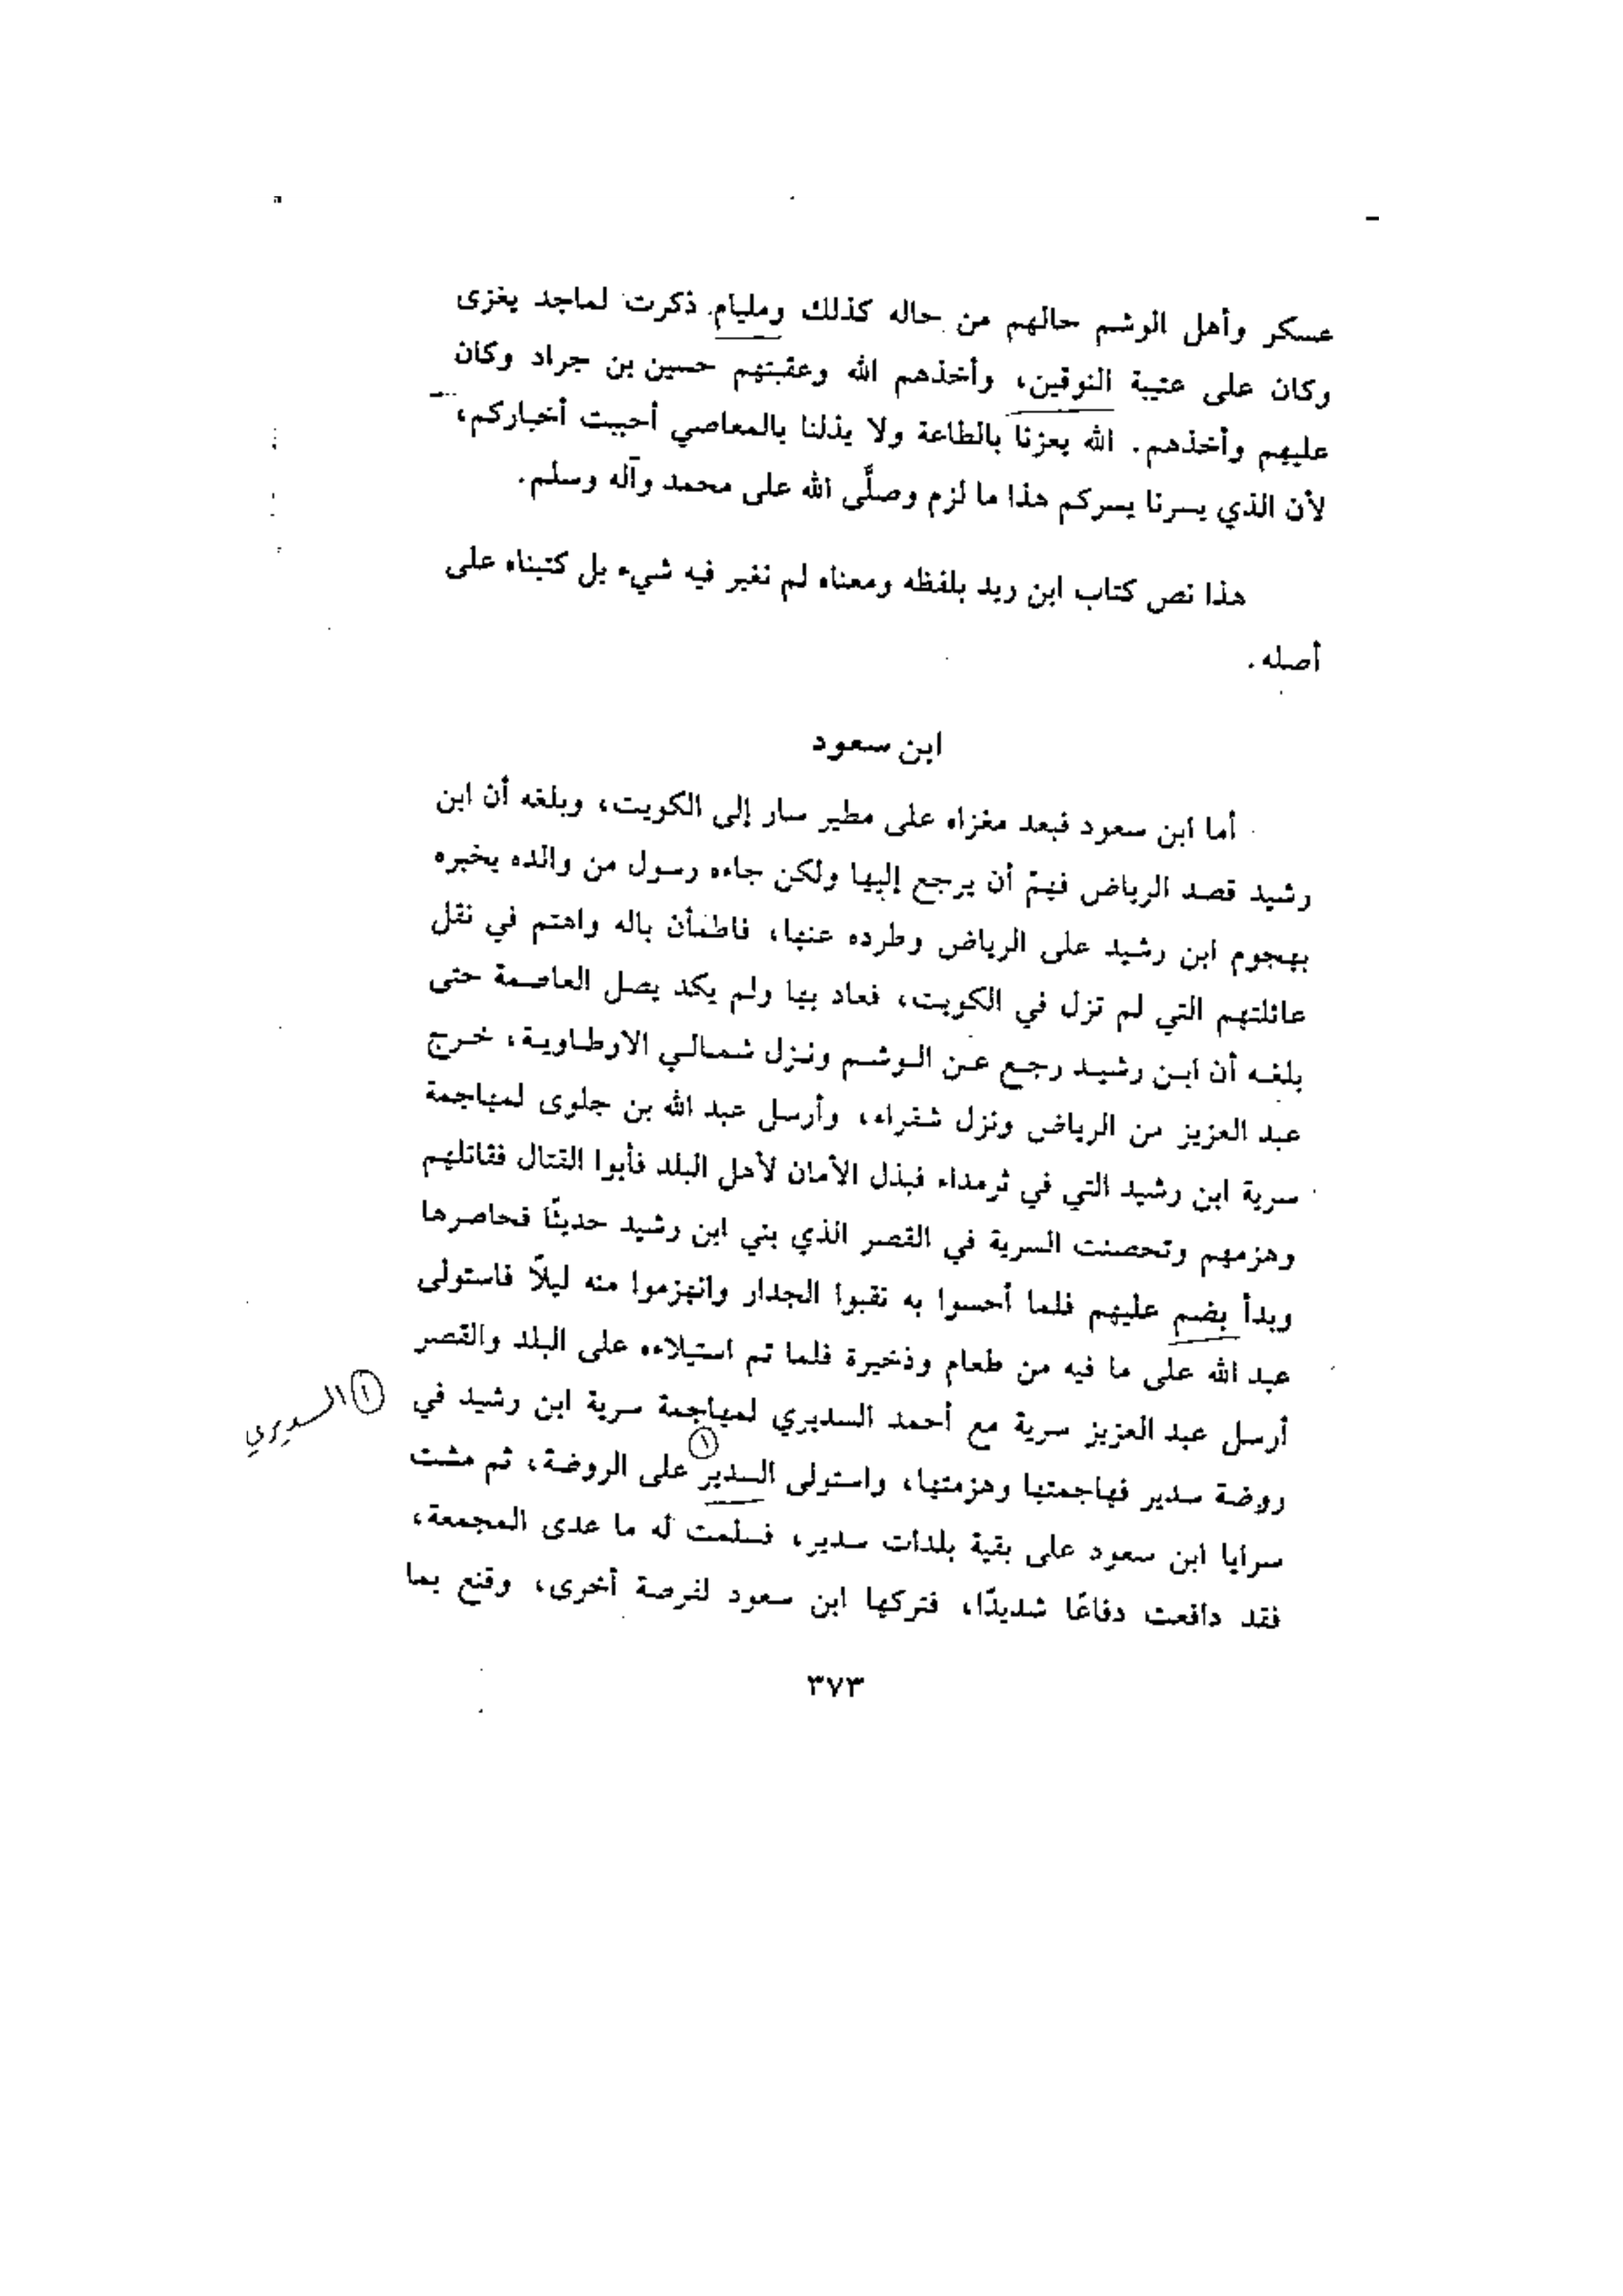 عسكر وأهل الوشم حالهم من حاله كذلك ومليام ذكرت لماجد يغزى
وكان على عتيبة النوقين، وأخذهم الله وعقبتهم حسين بن جراد وكان
عليهم وأخذهم. الله يعزنا بالطاعة ولا يذلنا بالمعاصي أحببت أخباركم،
لأن الذي يسرنا يسركم هذا ما لزم وصلَّى الله على محمد وآله وسلم.
هذا نص كتاب ابن ربد بلفظه ومعناه لم نغير فيه شيء بل كتبناه على
أصله.
ابن سعود
أما ابن سعود فبعد مغزاه على مطير سار إلى الكويت، وبلغه أن ابن
رشيد قصد الرياض فهمّ أن يرجع إليها ولكن جاءه رسول من والده يخبره
بهجوم ابن رشيد على الرياض وطرده عنها، فاطمأن باله واهتم في نقل
عائلتهم التي لم تزل في الكويت، فعاد بها ولم يكد يصل العاصمة حتى
بلغه أن ابن رشيد رجع عن الوشم ونزل شمالي الارطاوية، خرج
عبد العزيز من الرياض ونزل شقراء، وأرسل عبد الله بن جلوى لمهاجمة
سرية ابن رشيد التي في ثرمداء فبذل الأمان لأهل البلد فأبوا القتال فقاتلهم
وهزمهم وتحصنت السرية في القصر الذي بني ابن رشيد حديثًا فحاصرها
وبدأ بضم عليهم فلما أحسوا به نقبوا الجدار وانهزموا منه ليلاً فاستولى
عبد الله على ما فيه من طعام وذخيرة فلما تم استيلاءه على البلد والقصر
أرسل عبد العزيز سرية مع أحمد السديري لمهاجمة سرية ابن رشيد في
١ السديري
روضة سدير فهاجمتها وهزمتها، واستولى السدير ١ على الروضة، ثم مشت
سرايا ابن سعود على بقية بلدات سدير، فسلمت له ما عدى المجمعة،
فقد دافعت دفاعًا شديدًا، فتركها ابن سعود لفرصة أخرى، وقنع بما
٣٧٣